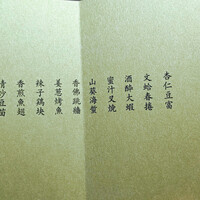 杏仁豆富
文蛤春捲
酒醉大蝦
蜜汁叉燒
山葵海蜇
香佛跳牆
姜蔥烤魚
辣子鷄块
香煎魚翅
清炒豆苗